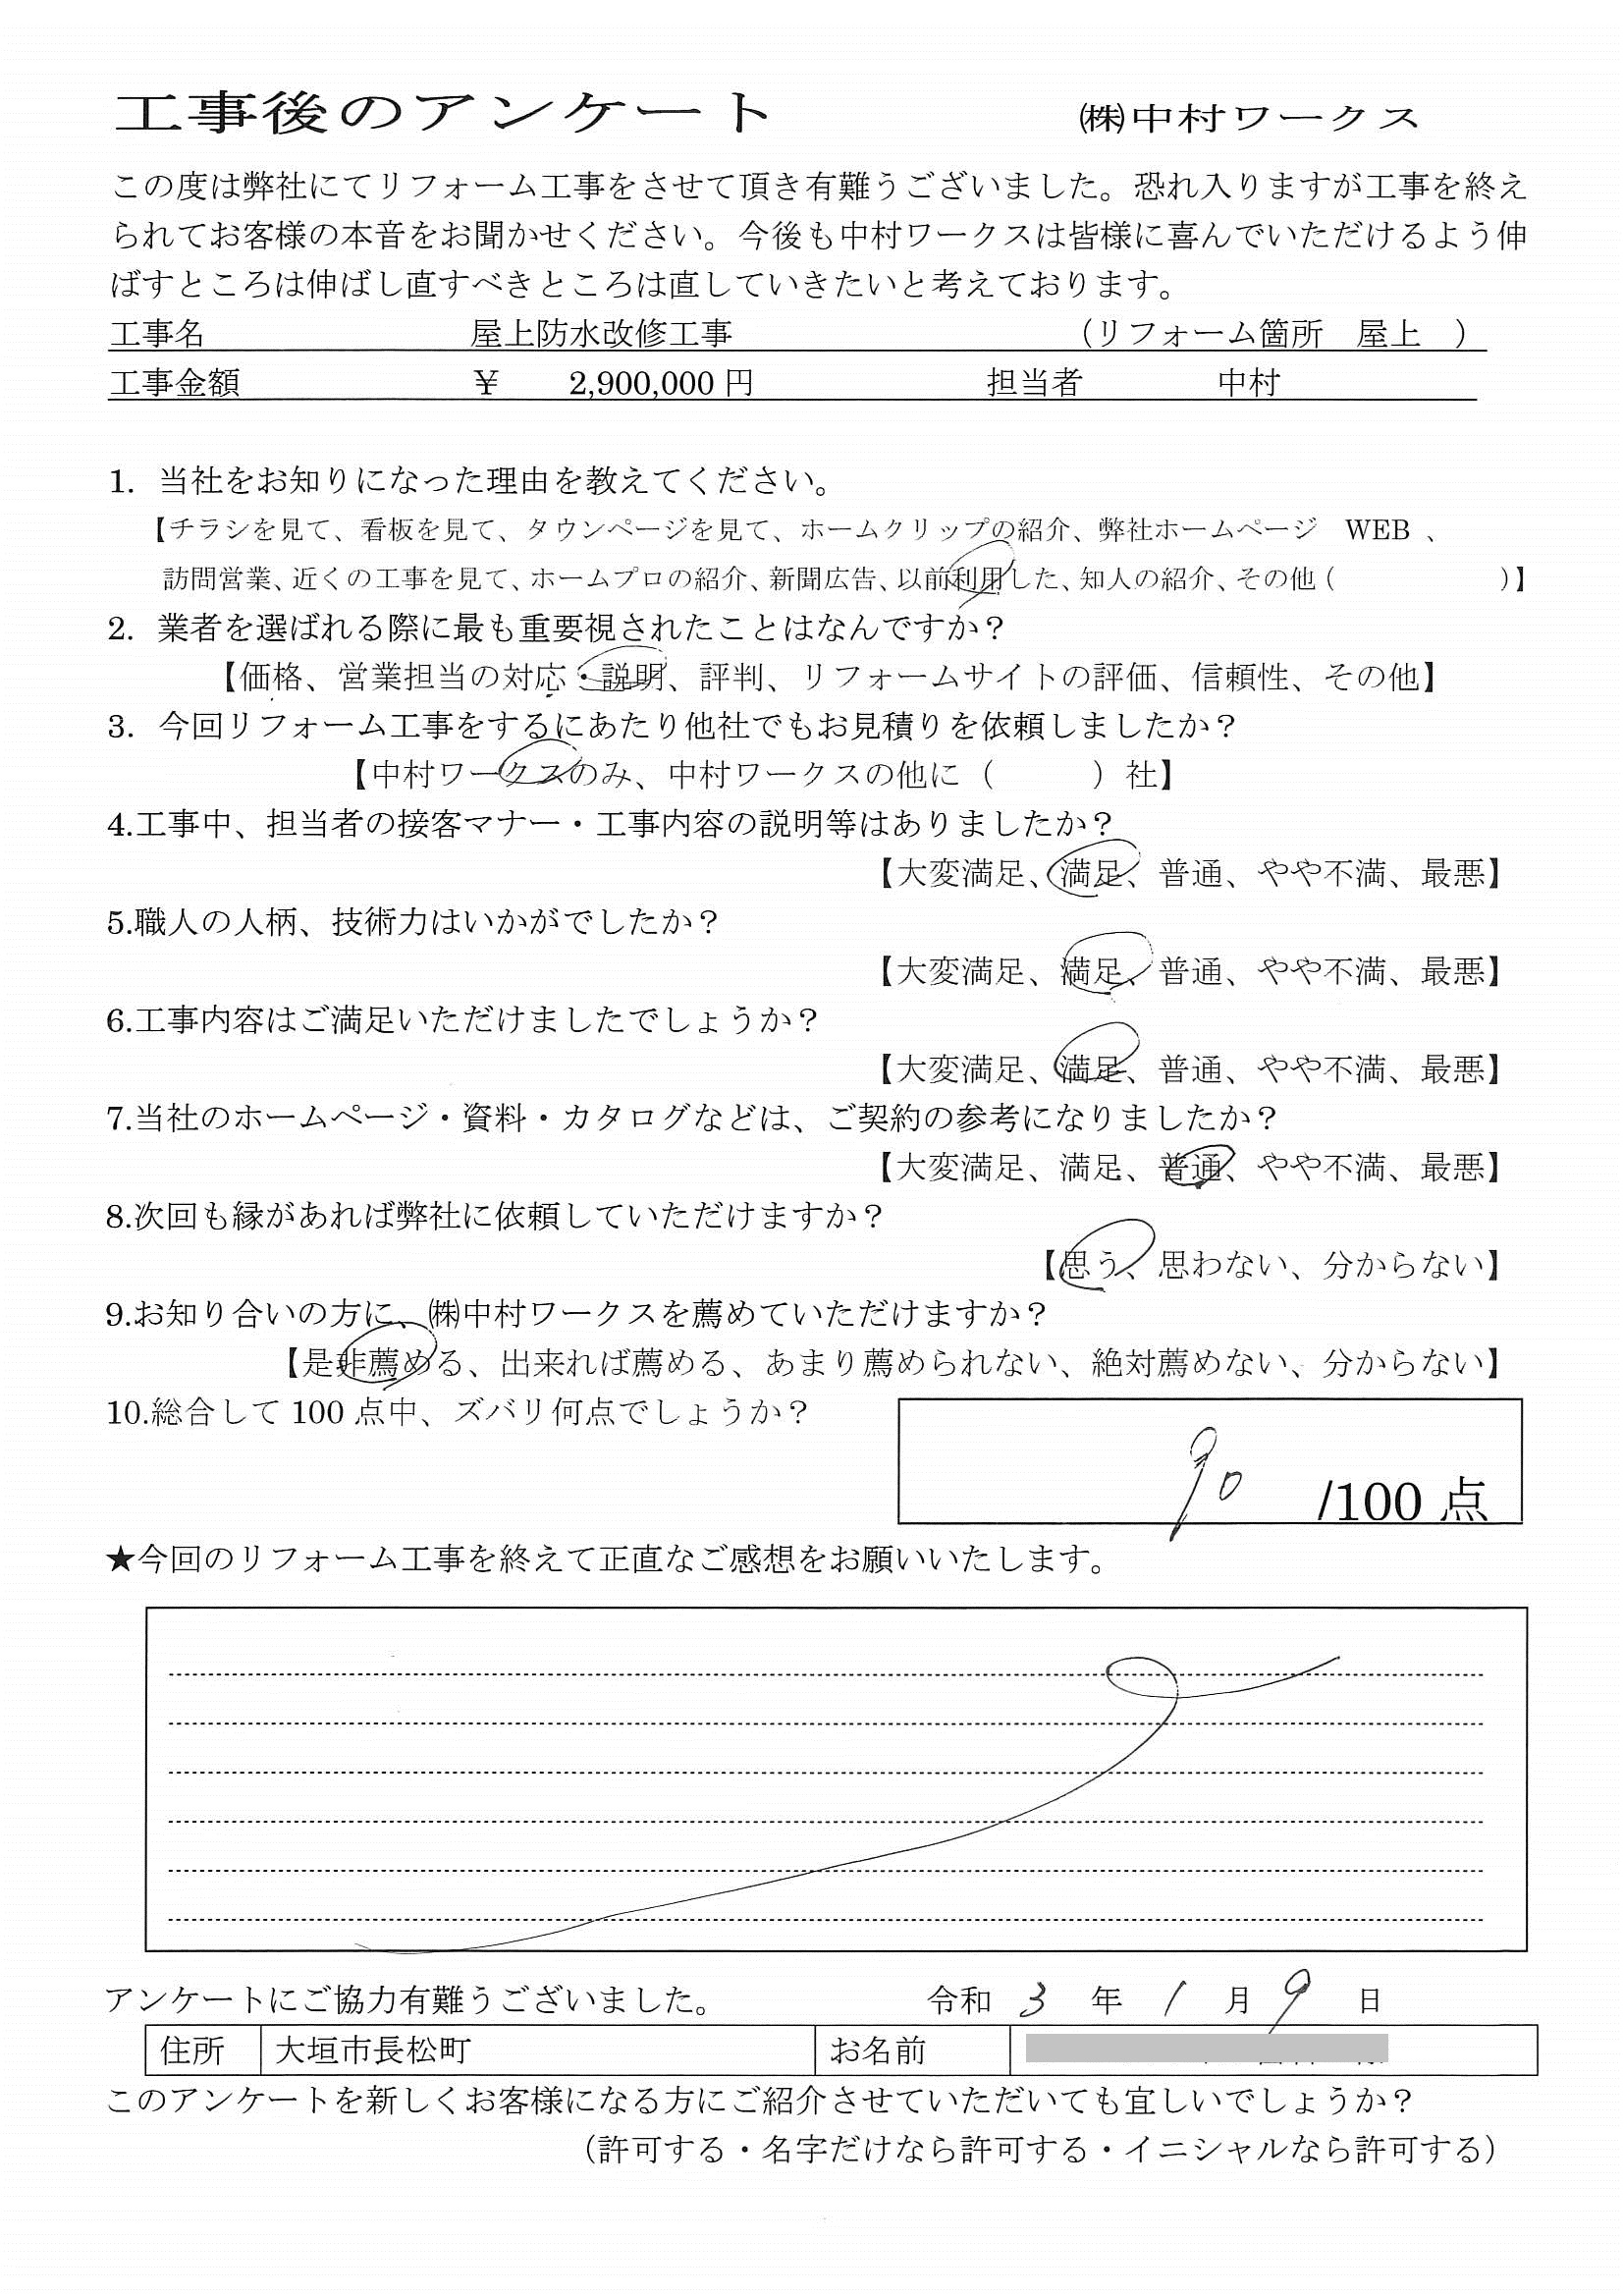 工事後のアンケート　㈱中村ワークス
この度は弊社にてリフォーム工事をさせて頂き有難うございました。恐れ入りますが工事を終え
られてお客様の本音をお聞かせください。今後も中村ワークスは皆様に喜んでいただけるよう伸
ばすところは伸ばし直すべきところは直していきたいと考えております。
工事名　屋上防水改修工事　（リフォーム箇所　屋上　）
工事金額　￥　2,900,000 円　担当者　中村
1. 当社をお知りになった理由を教えてください。
【チラシを見て、看板を見て、タウンページを見て、ホームクリップの紹介、弊社ホームページ　WEB 、
訪問営業、近くの工事を見て、ホームプロの紹介、新聞広告、以前利用した、知人の紹介、その他（　　　）】
2. 業者を選ばれる際に最も重要視されたことはなんですか？
【価格、営業担当の対応・説明、評判、リフォームサイトの評価、信頼性、その他】
3. 今回リフォーム工事をするにあたり他社でもお見積りを依頼しましたか？
【中村ワークスのみ、中村ワークスの他に（　　　）社】
4.工事中、担当者の接客マナー・工事内容の説明等はありましたか？
【大変満足、満足、普通、やや不満、最悪】
5.職人の人柄、技術力はいかがでしたか？
【大変満足、満足、普通、やや不満、最悪】
6.工事内容はご満足いただけましたでしょうか？
【大変満足、満足、普通、やや不満、最悪】
7.当社のホームページ・資料・カタログなどは、ご契約の参考になりましたか？
【大変満足、満足、普通、やや不満、最悪】
8.次回も縁があれば弊社に依頼していただけますか？
【思う、思わない、分からない】
9.お知り合いの方に、㈱中村ワークスを薦めていただけますか？
【是非薦める、出来れば薦める、あまり薦められない、絶対薦めない、分からない】
10.総合して 100 点中、ズバリ何点でしょうか？
90 /100 点
★今回のリフォーム工事を終えて正直なご感想をお願いいたします。
アンケートにご協力有難うございました。　令和 3 年 1 月 9 日
住所　大垣市長松町　お名前
このアンケートを新しくお客様になる方にご紹介させていただいても宜しいでしょうか？
（許可する・名字だけなら許可する・イニシャルなら許可する）